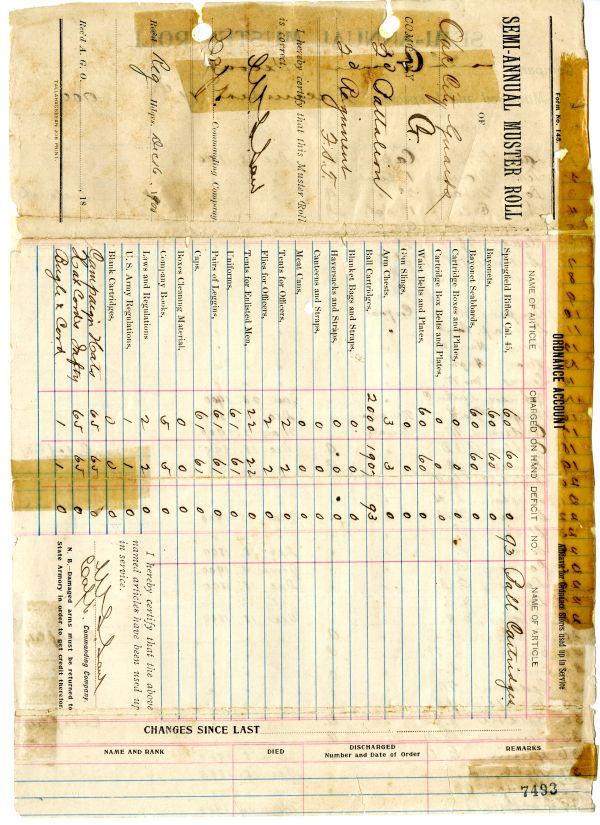 Form No. 148.
SEMI-ANNUAL MUSTER ROLL
OF
Oak City Guards
COMPANY G.
2d Battalion
2d Regiment
F.S.T.
I hereby certify that this Muster Roll
is correct.
Commanding Company.
Rec'd Reg Hdqrs. Dec 6, 1900
Rec'd A. G. O. , 18
TALLAHASSEEAN JOB PRINT.
ORDNANCE ACCOUNT
Affidavit for Ordnance Stores used up in Service
NAME OF ARTICLE CHARGED ON HAND DEFICIT NO. NAME OF ARTICLE
Springfield Rifles, Cal. 45, 60 60 0 93 Ball Cartridges.
Bayonets, 60 60 0
Bayonet Scabbards, 60 60 0
Cartridge Boxes and Plates, 0 0 0
Cartridge Box Belts and Plates, 0 0 0
Waist Belts and Plates, 60 60 0
Gun Slings, 0 0 0
Arm Chests, 3 3 0
Ball Cartridges, 2000 1907 93
Blanket Bags and Straps, 0 0 0
Haversacks and Straps, 0 0 0
Canteens and Straps, 0 0
Meat Cans, 0 0 0
Tents for Officers, 2 2 0
Flies for Officers, 2 2 0
Tents for Enlisted Men, 22 22 0
Uniforms, 61 61 0
Pairs of Leggins, 61 61 0
Caps, 61 61 0
Boxes Cleaning Material, 0 0 0
Company Books, 5 5 0
Laws and Regulations, 2 2 0
U. S. Army Regulations, 1 1 0
Blank Cartridges, 0 0 0
Campaign Hats 65 65 0
Hat Cords Infty 65 65 0
Bugle & Cord 1 1 0
I hereby certify that the above
named articles have been used up
in service.
Commanding Company.
N. B.—Damaged arms must be returned to
State Armory in order to get credit therefor.
CHANGES SINCE LAST
NAME AND RANK DIED DISCHARGED REMARKS
Number and Date of Order
7493